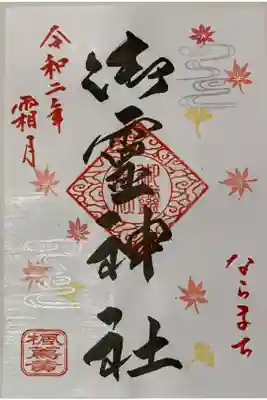 ならまち
御霊神社
令和二年
霜月